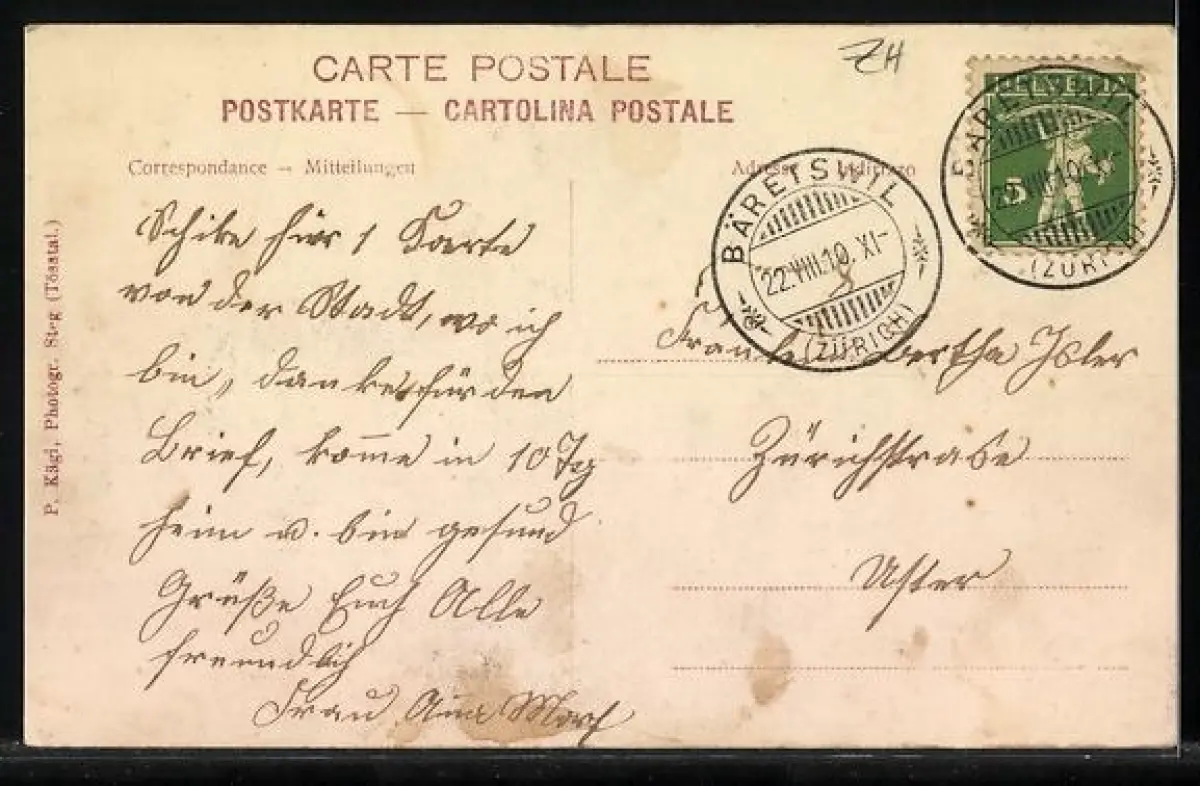 ZH
CARTE POSTALE
POSTKARTE — CARTOLINA POSTALE
Correspondance – Mitteilungen
Schike hier 1 Karte
von der Stadt, wo ich
bin, danke für den
Brief, komme in 10 Tg
heim u. bin gesund
Grüße Euch Alle
freundlich
Frau Anna
P. Kägi, Photogr. Steg (Tösstal.)
HELVETIA
5
BÄRETSWIL
22.VIII.10. XI–
(ZÜRICH)
BÄRETSWIL
22.VIII.10. XI–
8
(ZÜRICH)
Bertha Isler
Zürichstrasse
Uster